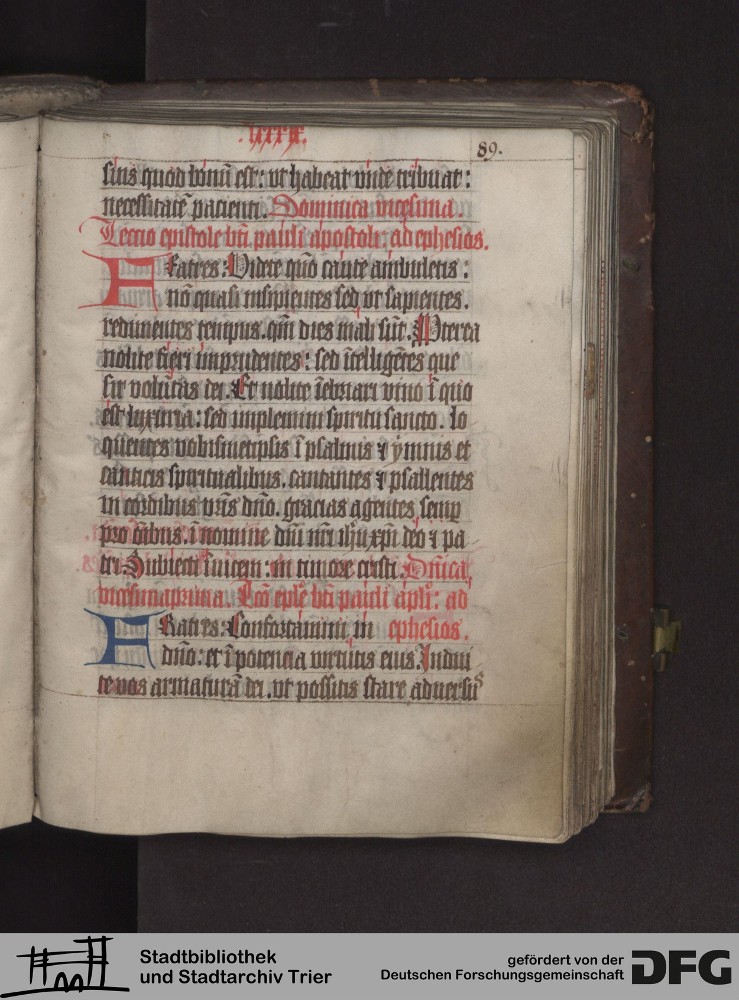 89.
suis quod bonū est: vt habeat vnde tribuat:
necessitatē pacienti. Dominica vicesima.
Leccio epistole bti pauli apostoli: ad ephesios.
Fratres: Videte quō caute ambuletis:
nō quasi insipientes sed vt sapientes.
redimentes tempus. qm̄ dies mali sūt. Propterea
nolite fieri imprudentes: sed ītelligētes que
sit volūtas dei. Et nolite īebriari vino ī quo
est luxuria: sed implemini spiritu sancto. lo
quentes vobismetipsis ī psalmis ⁊ ymnis et
canticis spiritualibus. cantantes ⁊ psallentes
in cordibus vr̄is dn̄o. gracias agentes semp
pro oībus. ī nomine dn̄i nr̄i ihu xp̄i deo ⁊ pa
tri Subiecti īuicem: in timore cristi. Dn̄ica
vicesimaprima. Lco eple bti pauli apli: ad
FRatres: Confortamini in ephesios.
dn̄o: et ī potencia virtutis eius. Indui
te vos armaturā dei. vt possitis stare aduersus
Stadtbibliothek
und Stadtarchiv Trier
gefördert von der
Deutschen Forschungsgemeinschaft
DFG